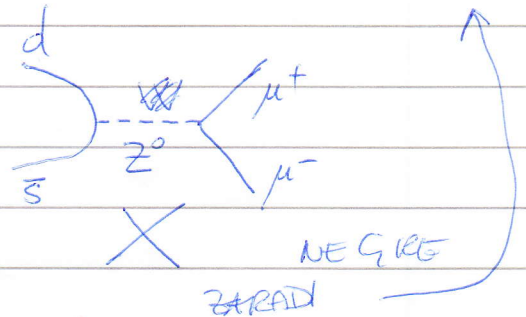 d
μ+
Z⁰
s̄
μ-
NE GRE
ZARADI